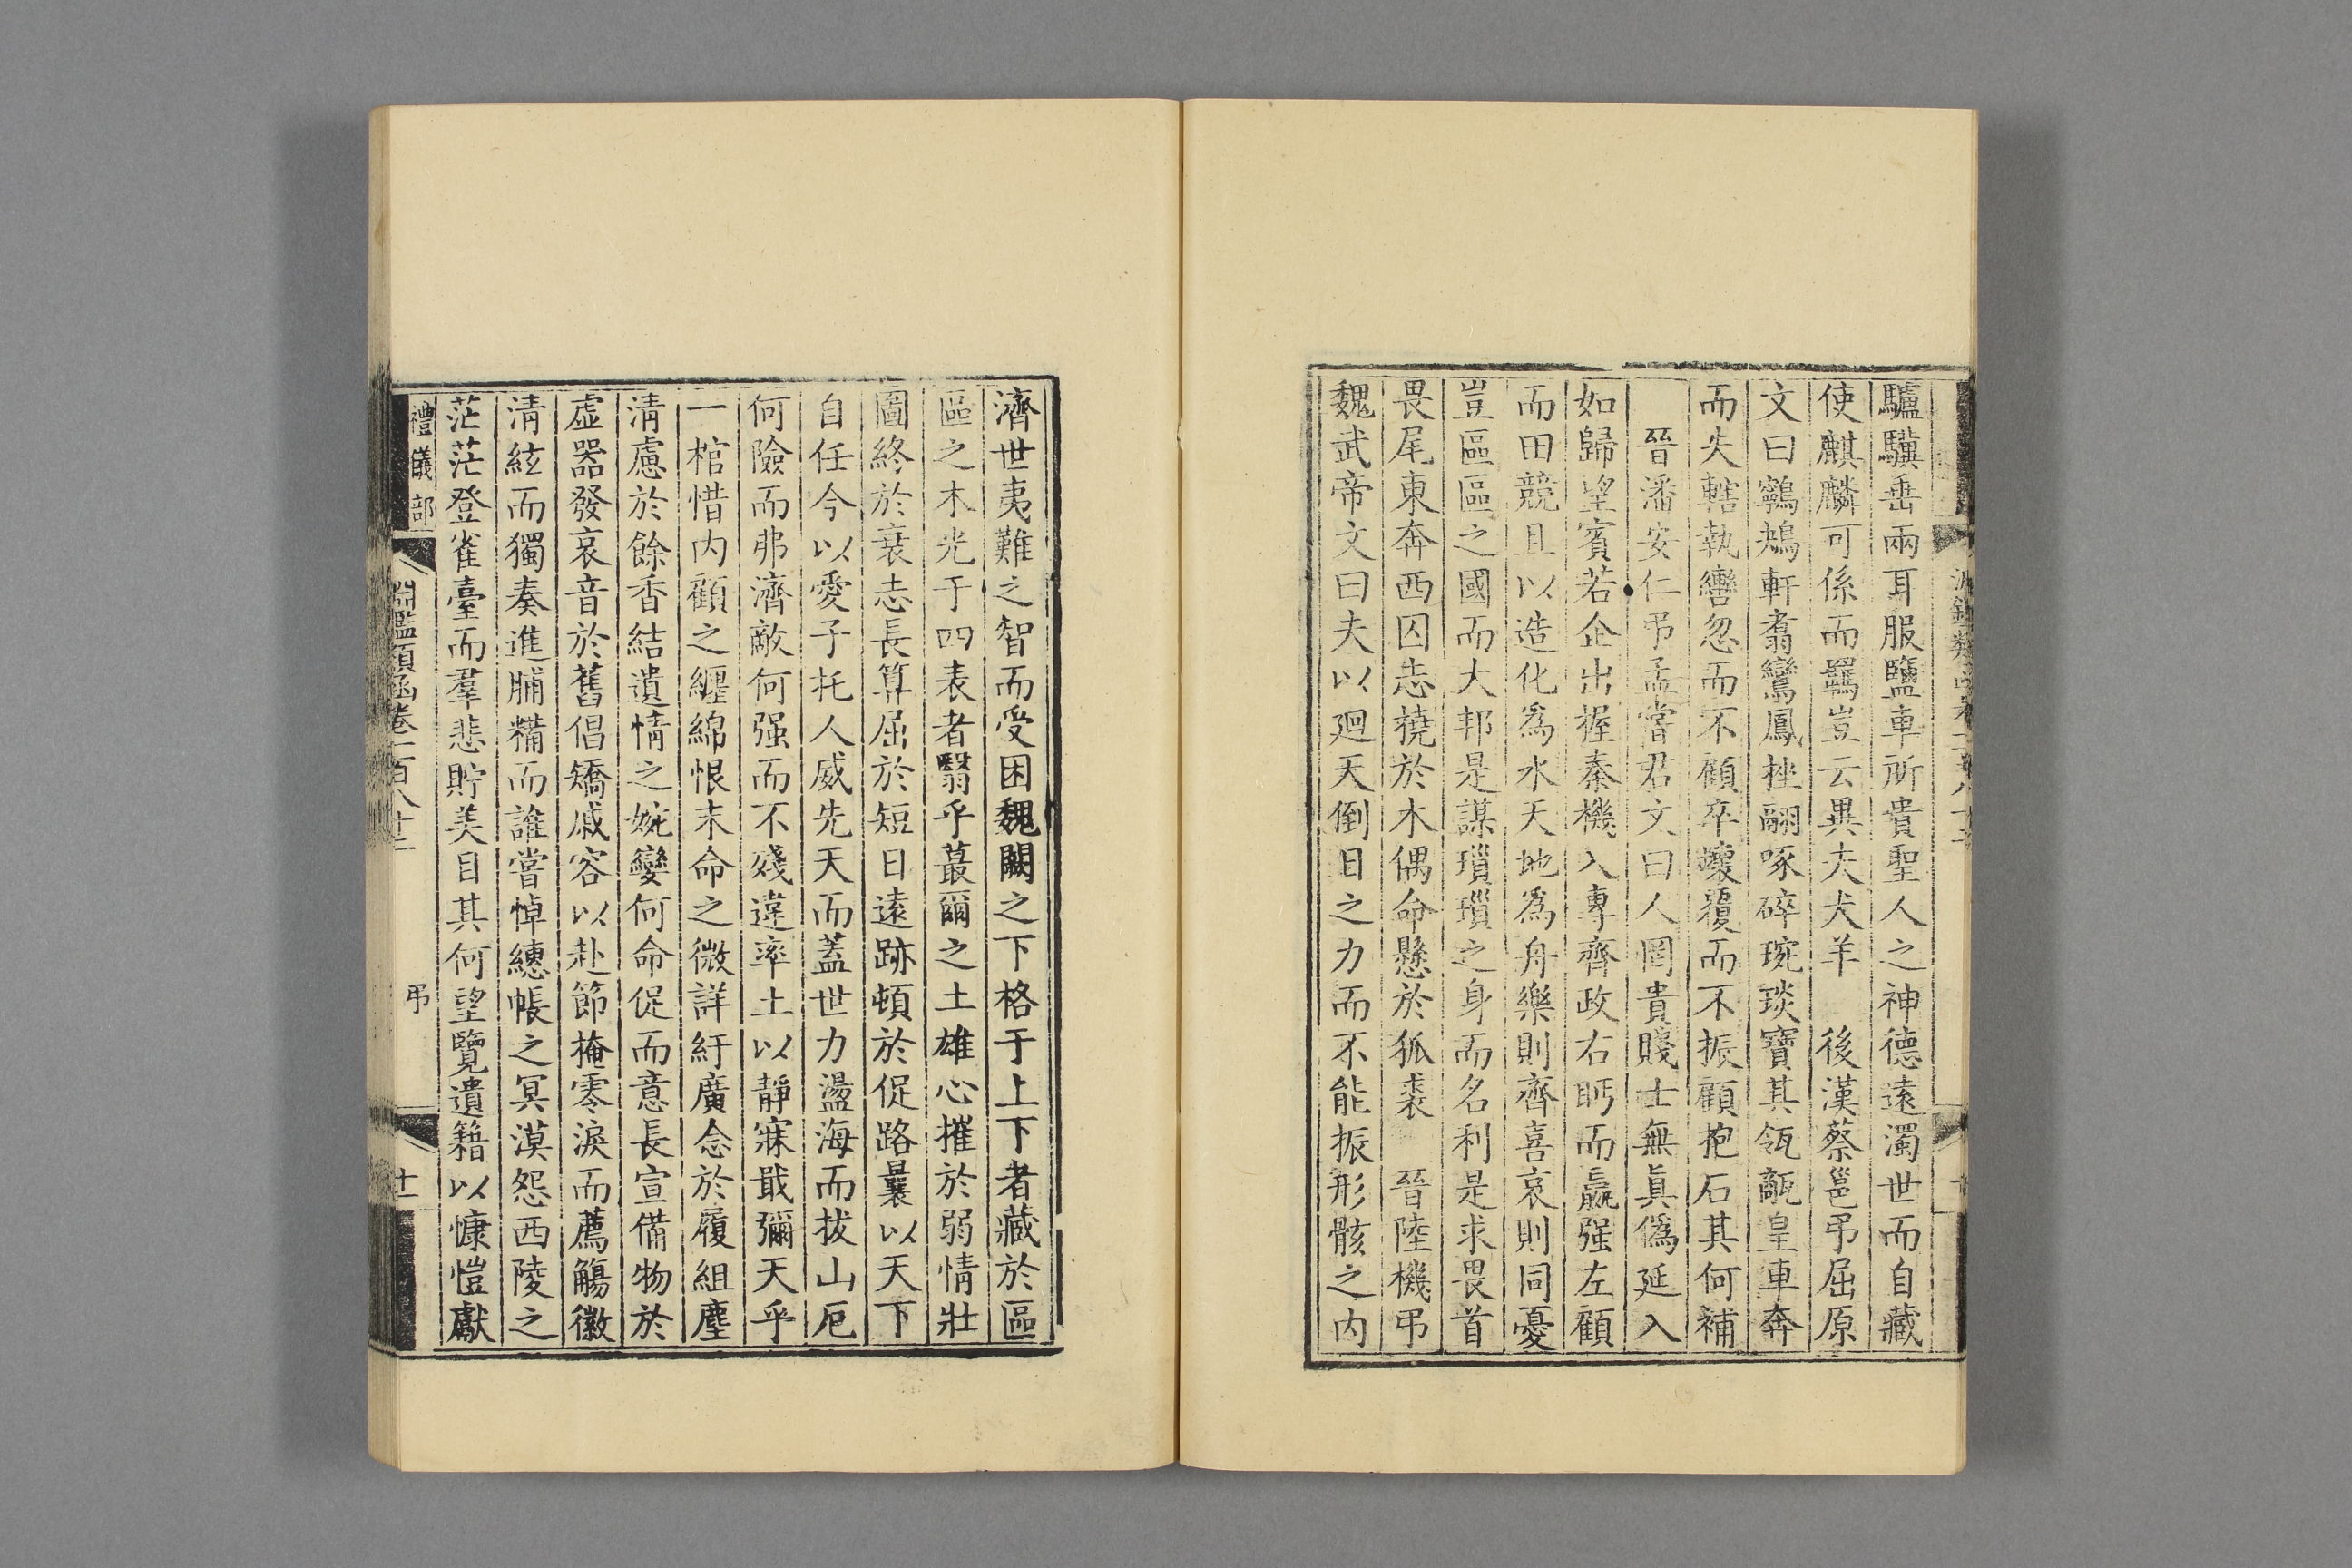 驢驥垂兩耳服鹽車所貴聖人之神德遠濁世而自藏
使麒麟可係而羈豈云異夫犬羊　後漢蔡邕弔屈原
文曰鸋鴂軒翥鸞鳳挫翮啄碎琬琰寶其瓴甋皇車奔
而失轄執轡忽而不顧卒壞覆而不振顧抱石其何補
晉潘安仁弔孟嘗君文曰人罔貴賤士無眞僞延入
如歸望賓若企出握秦機入專齊政右眄而嬴强左顧
而田競且以造化爲水天地爲舟樂則齊喜哀則同憂
豈區區之國而大邦是謀瑣瑣之身而名利是求畏首
畏尾東奔西囚志撓於木偶命懸於狐裘　晉陸機弔
魏武帝文曰夫以廻天倒日之力而不能振形骸之内
濟世夷難之智而受困魏闕之下格于上下者藏於區
區之木光于四表者翳乎蕞爾之土雄心摧於弱情壯
圖終於衰志長算屈於短日遠跡頓於促路曩以天下
自任今以愛子托人威先天而蓋世力盪海而拔山厄
何險而弗濟敵何强而不殘違率土以靜寐戢彌天乎
一棺惜内顧之纏綿恨末命之微詳紆廣念於履組塵
清慮於餘香結遺情之婉孌何命促而意長宣備物於
虛器發哀音於舊倡矯戚容以赴節掩零淚而薦觴徽
清絃而獨奏進脯糒而誰嘗悼繐帳之冥漠怨西陵之
茫茫登雀臺而羣悲貯美目其何望覽遺籍以慷愾獻
禮儀部
淵鑑類函卷一百八十二
弔
十一